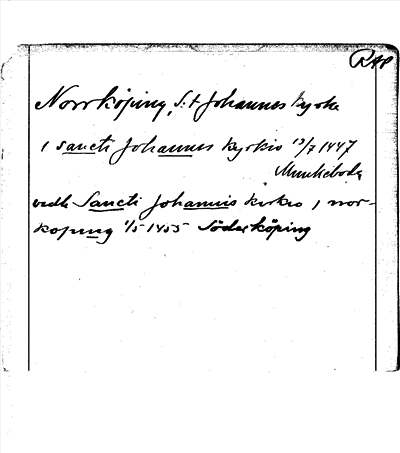 RAP
Norrköping, S:t Johannes kyrka
i sancti Johannes kyrkio 13/7 1447
Munkeboda
vedh Sancti Johannis kirkio i nor-
koping 1/5 1455 Söderköping